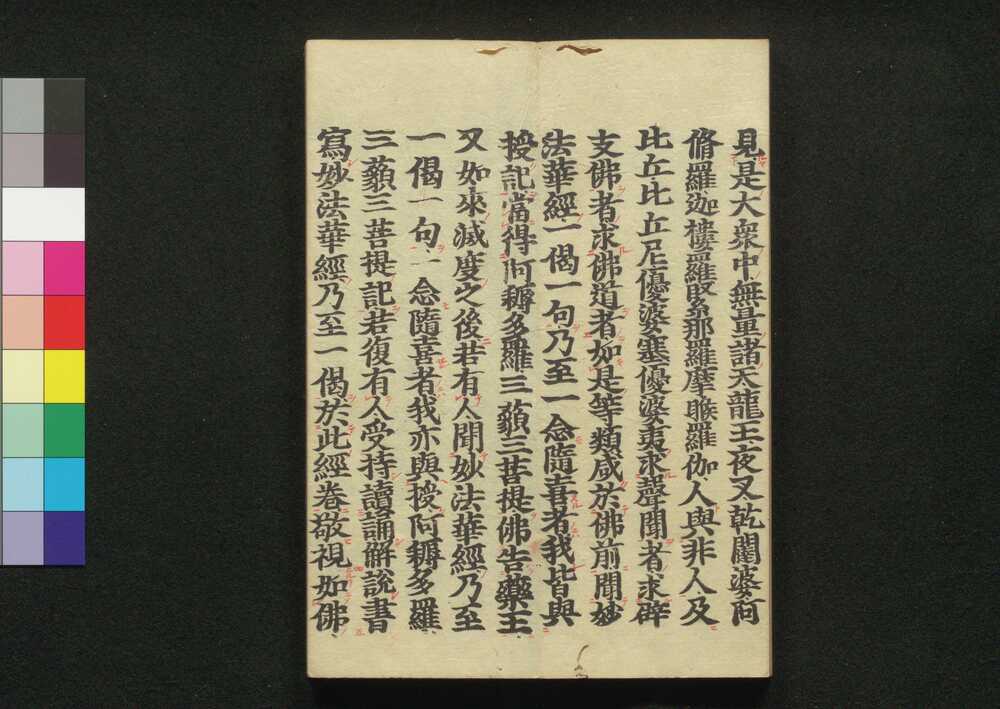 見是大衆中無量諸天龍王夜叉乾闥婆阿
脩羅迦樓羅緊那羅摩睺羅伽人與非人及
比丘比丘尼優婆塞優婆夷求聲聞者求辟
支佛者求佛道者如是等類咸於佛前聞妙
法華經一偈一句乃至一念隨喜者我皆與
授記當得阿耨多羅三藐三菩提佛告藥王
又如來滅度之後若有人聞妙法華經乃至
一偈一句一念隨喜者我亦與授阿耨多羅
三藐三菩提記若復有人受持讀誦解說書
寫妙法華經乃至一偈於此經卷敬視如佛